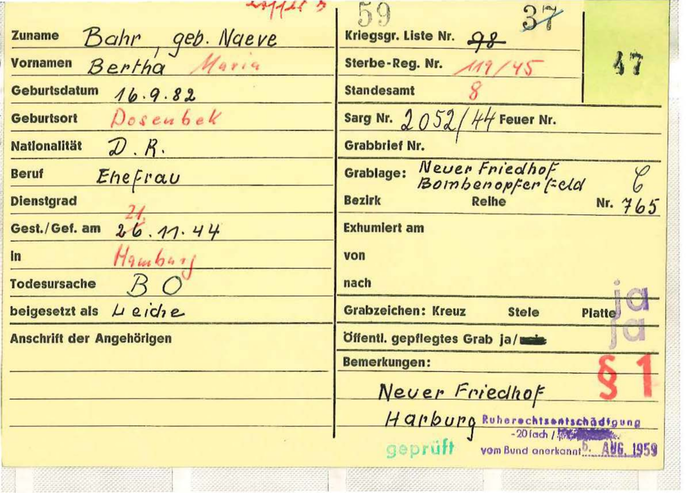 59 37
Zuname Bahr, geb. Naeve
Vornamen Bertha Maria
Geburtsdatum 16.9.82
Geburtsort Dosenbek
Nationalität D.R.
Beruf Ehefrau
Dienstgrad
21.
Gest./Gef. am 26.11.44
in Hamburg
Todesursache BO
beigesetzt als Leiche
Anschrift der Angehörigen
Kriegsgr. Liste Nr. 98
47
Sterbe-Reg. Nr. 119/45
Standesamt 8
Sarg Nr. 2052/44 Feuer Nr.
Grabbrief Nr.
Grablage: Neuer Friedhof
Bombenopferfeld C
Bezirk Reihe Nr. 765
Exhumiert am
von
nach
ja
Grabzeichen: Kreuz Stele Platte
ja
Öffentl. gepflegtes Grab ja/
Bemerkungen:
§ 1
Neuer Friedhof
Harburg
Ruherechtsentschädigung
-20fach/
geprüft
vom Bund anerkannt 6. AUG. 1959